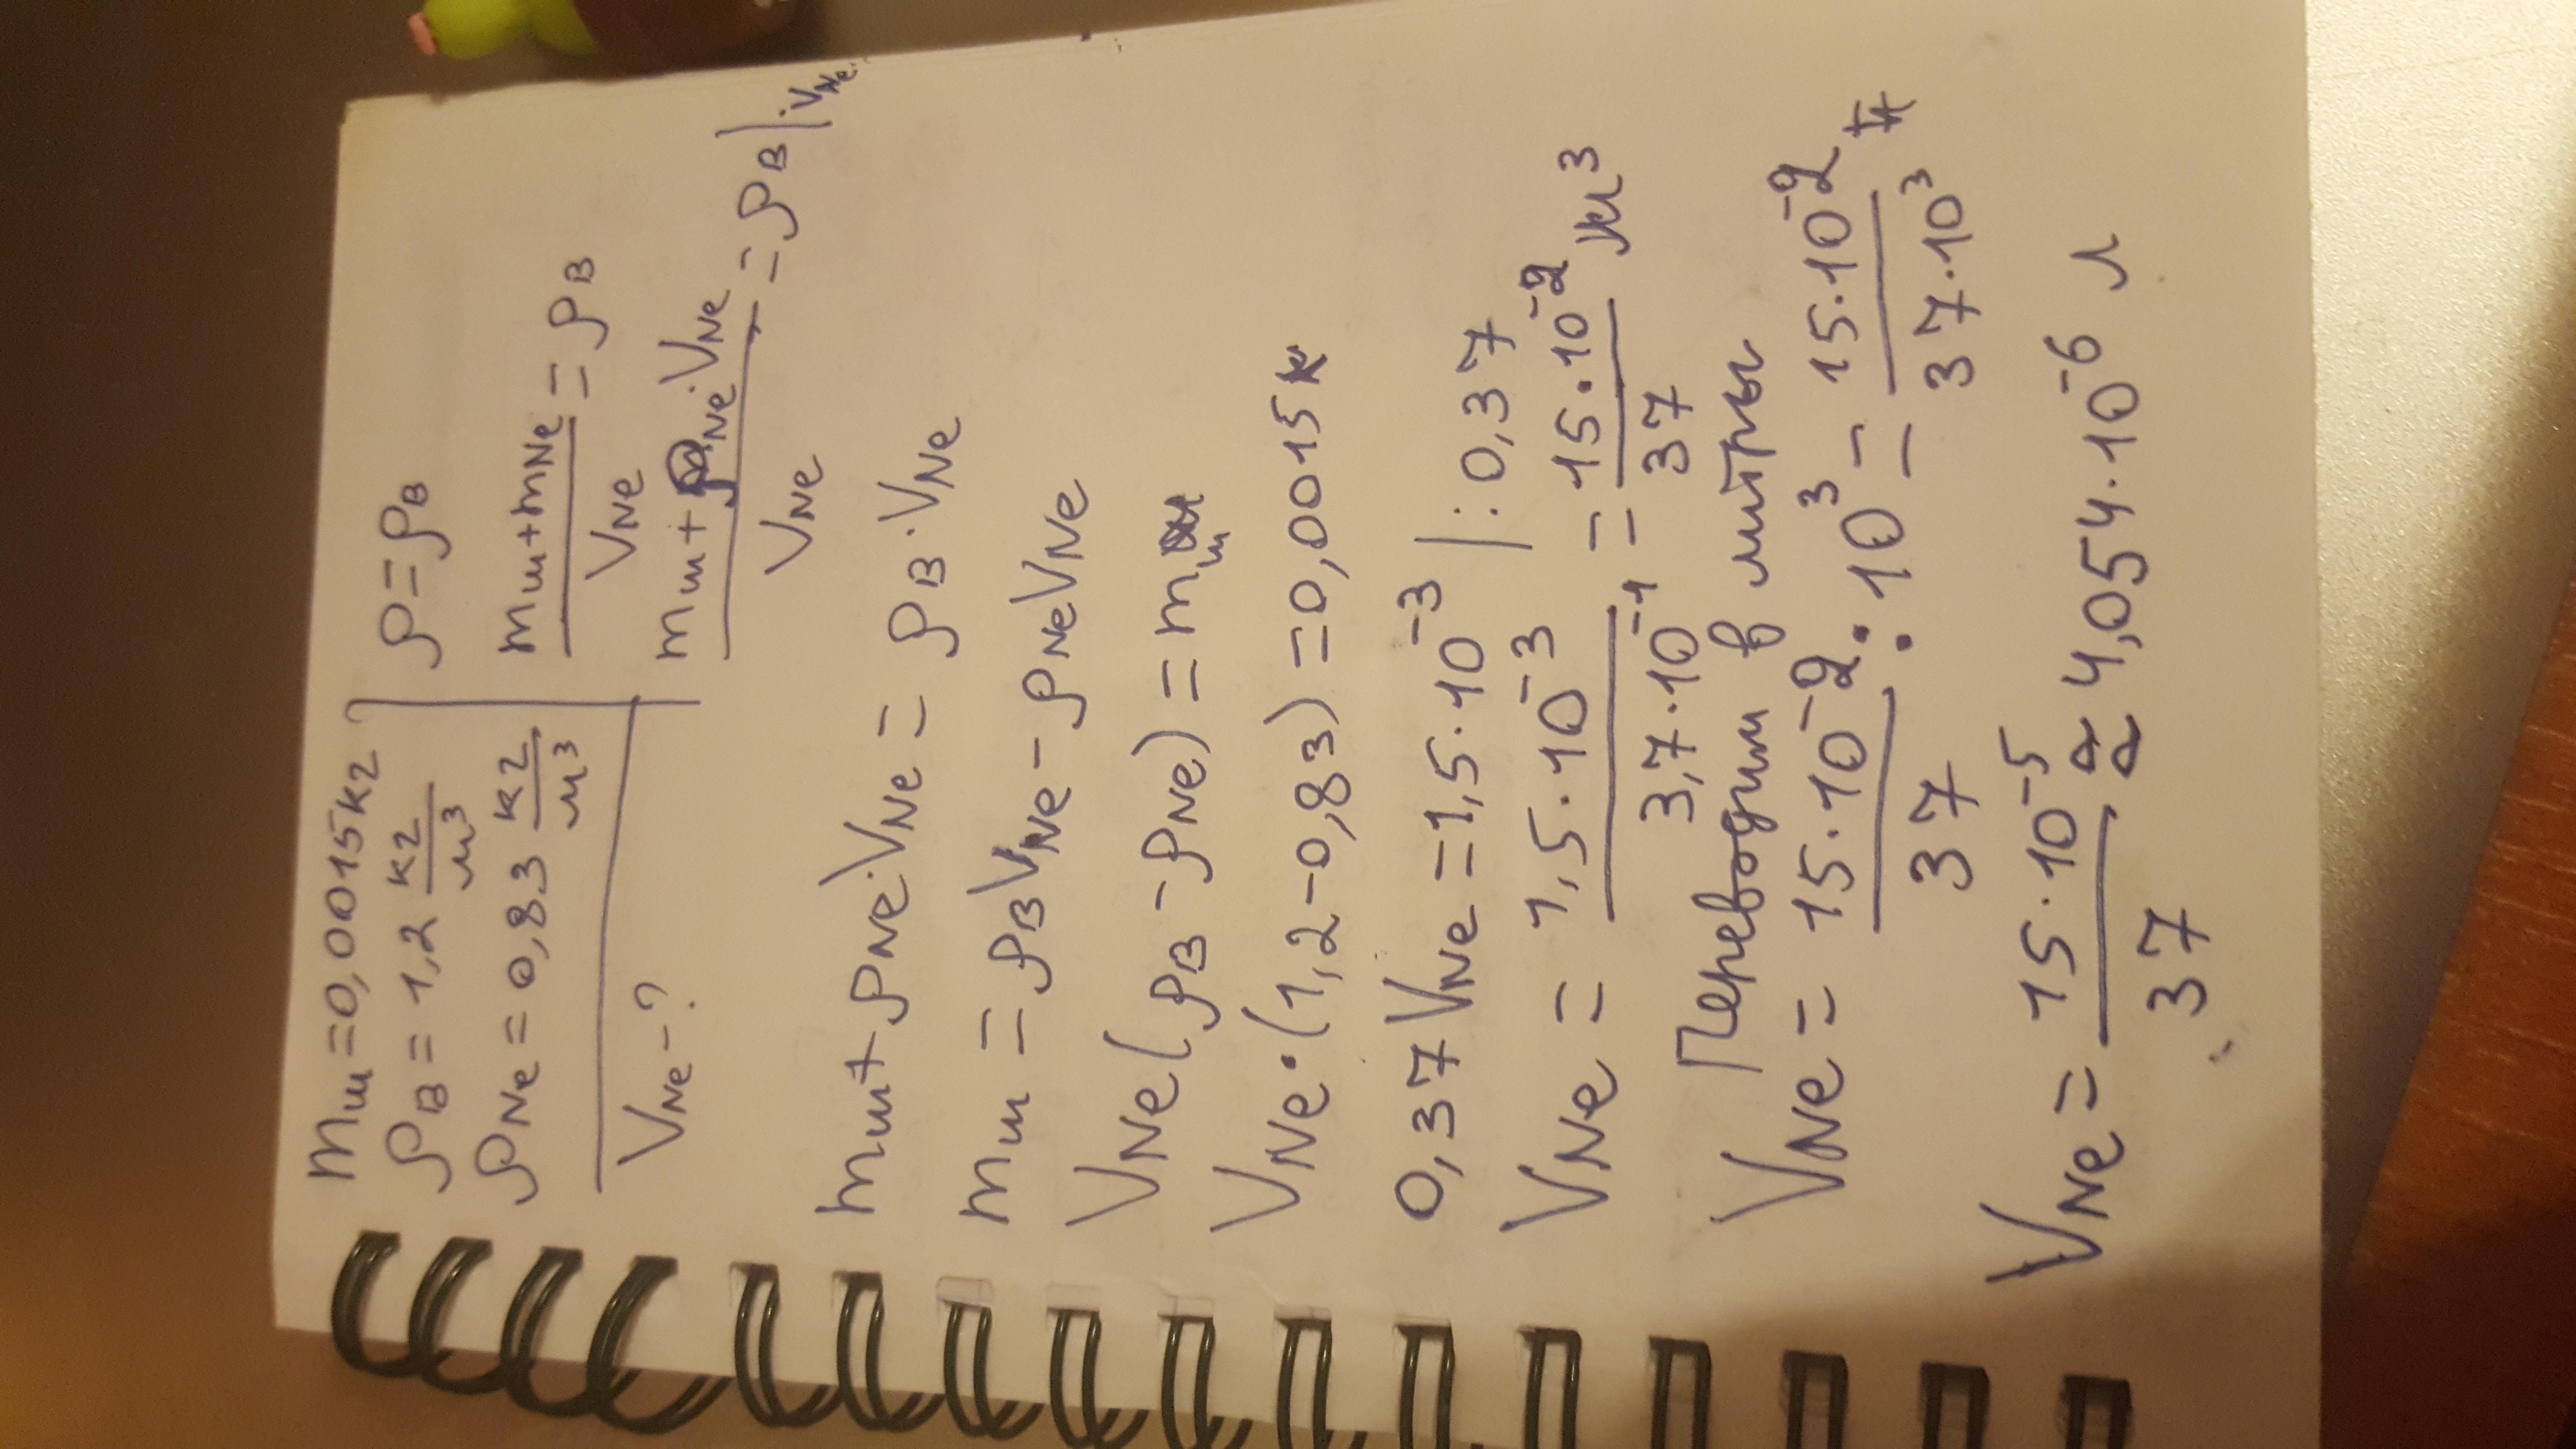 mш=0,0015кг
ρв=1,2 кг/м³
ρNe=0,83 кг/м³
VNe-?
ρ=ρв
(mш+mNe)/VNe=ρв
(mш+ρNe·VNe)/VNe=ρв|·VNe.
mш+ρNe·VNe=ρв·VNe
mш=ρвVNe-ρNeVNe
VNe(ρв-ρNe)=mш
VNe·(1,2-0,83)=0,0015
0,37VNe=1,5·10⁻³ |:0,37
VNe=(1,5·10⁻³)/(3,7·10⁻¹)=(15·10⁻²)/37 м³
Переводим в литры
VNe=(15·10⁻²)/37:10³=(15·10⁻²)/(37·10³)
VNe=(15·10⁻⁵)/37≈4,054·10⁻⁶ л